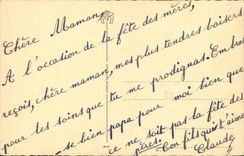 Chère Maman,
A l'occasion de la fête des mères,
reçois, chère maman, mes plus tendres baisers
pour les soins que tu me prodignas. Embras
se bien papa pour moi bien que
ce ne soit pas la fête des
pères. Ton fils qui t'aime
Claude